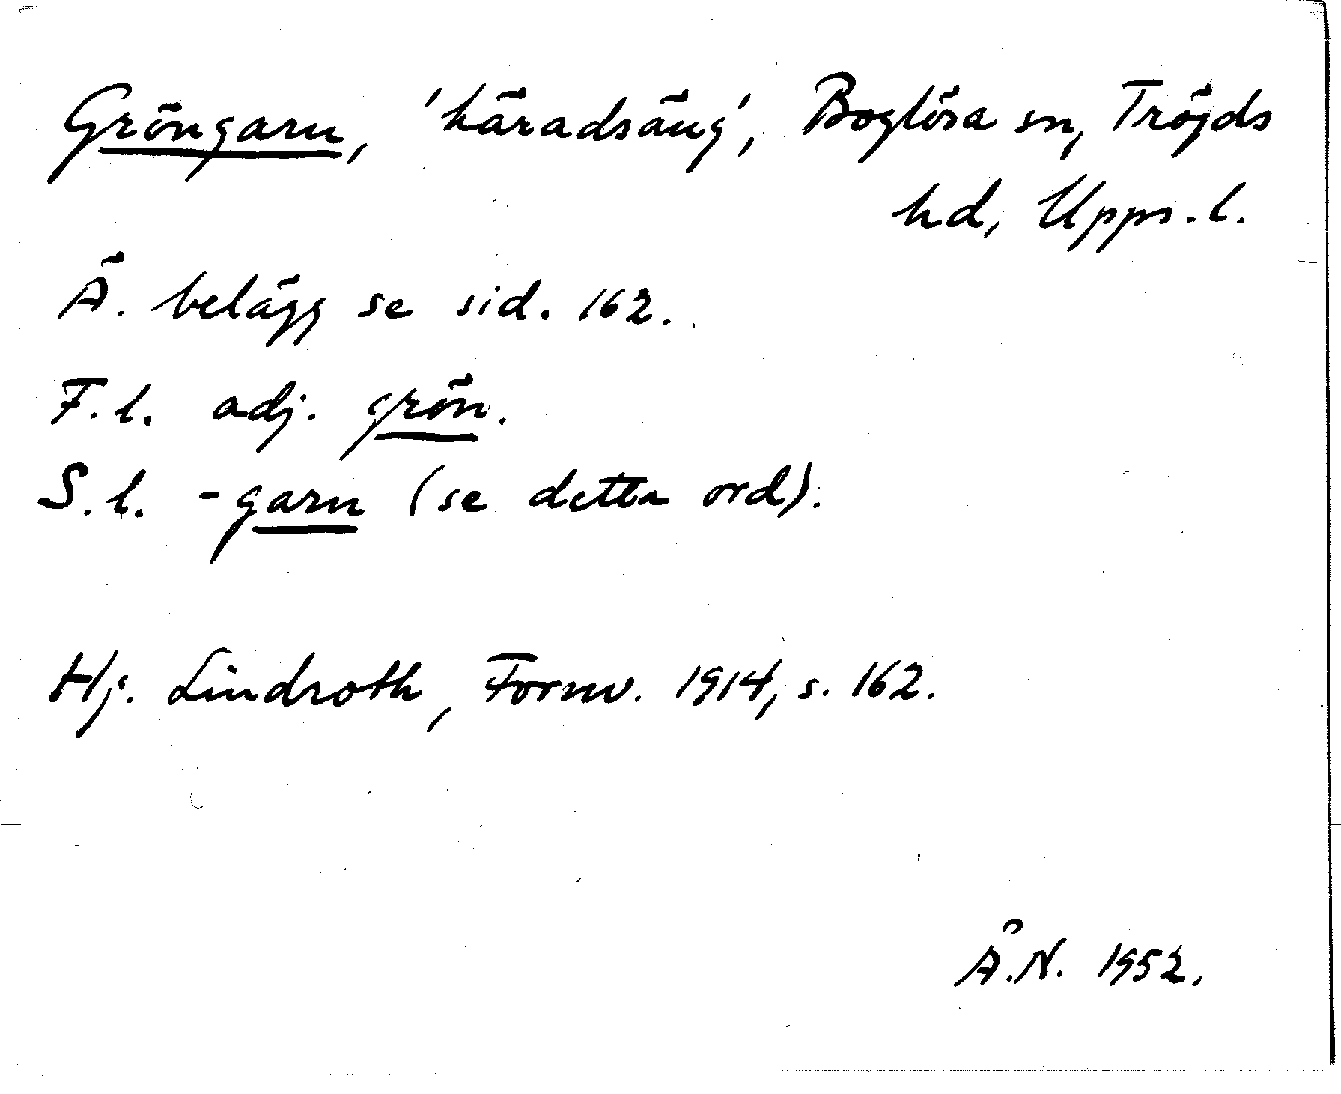 Gröngarn, 'häradsäng', Boglösa sn, Tröjds
hd, Upps. l.
Ä. belägg se sid. 162.
F. l. adj. grön.
S. l. -garn (se detta ord).
Hj. Lindroth, Fornv. 1914, s. 162.
Å. N. 1952.